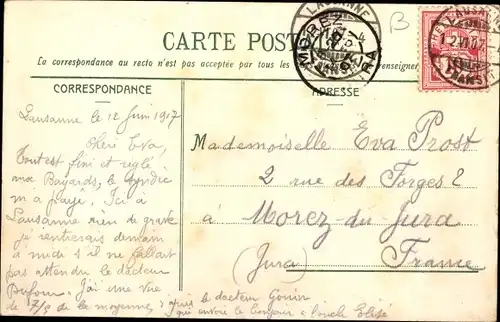 CARTE POSTALE
La correspondance au recto n'est pas acceptée par tous les
renseigner
CORRESPONDANCE
ADRESSE
Lausanne le 12 Juin 1907
Chéri Eva,
Tout est fini et reglé
aux Bayards, le syndic
m'a payé. Ici à
Lausanne rien de grave
je rentrerais demain
à midi s'il ne fallait
pas attendre le docteur
Dufour. J'ai une vue
de 7/8 de la moyenne, d'après le docteur Gonin
qui envoie le bonjour à l'oncle Elisé
Mademoiselle Eva Prost
2 rue des Forges 2
à Morez-du-Jura
(Jura) France
LAUSANNE
MOREZ
JURA
LAUSANNE
TRANSIT
B